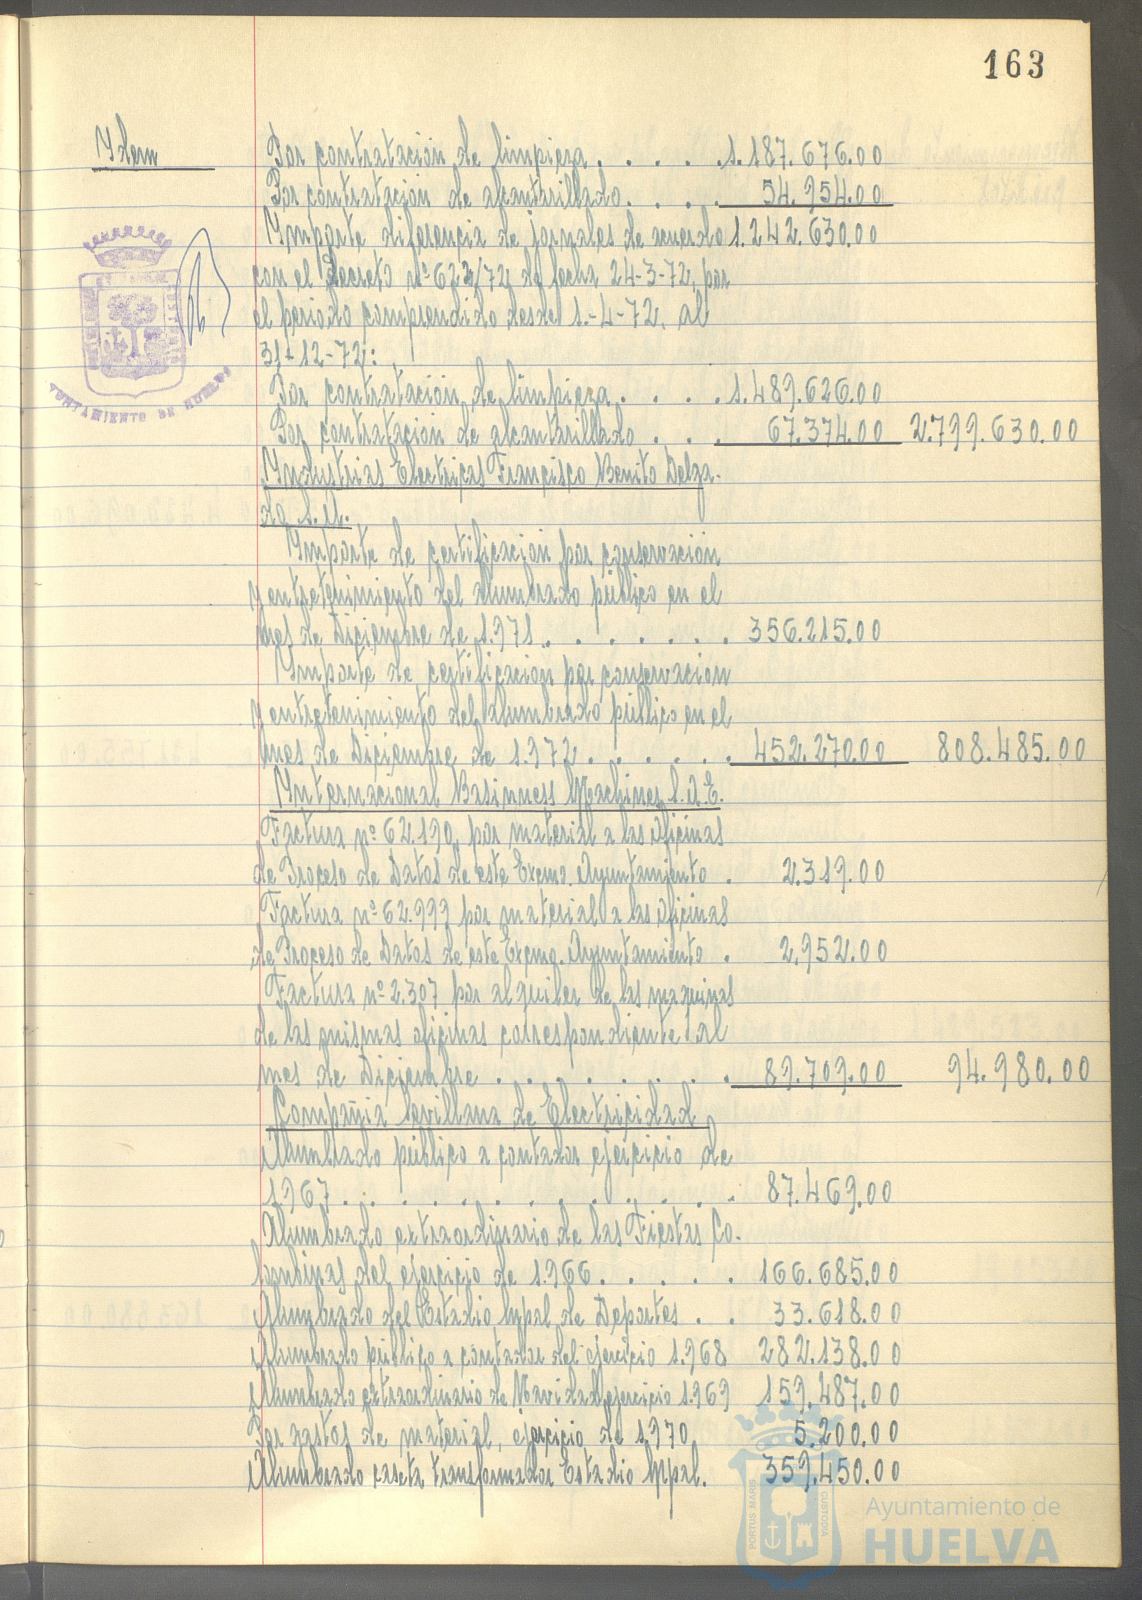 163
Ydem
Por contratación de limpieza . . . . 1.187.676.00
Por contratación de alcantarillado. . . . 54.954.00
Ymporte diferencia de jornales de acuerdo 1.242.630.00
con el Decreto nº 622/72, de fecha 24-3-72, por
el periodo comprendido desde 1.-4-72, al
31-12-72:
Por contratación de limpieza . . . . 1.489.626.00
Por contratación de alcantarillado . . . 67.374.00 2.799.630.00
Yndustrias Electricas Francisco Benito Delga-
do S.A.
Ymporte de certificación por conservación
y entretenimiento del alumbrado público en el
mes de Diciembre de 1.971 . . . . . . . 356.215.00
Ymporte de certificación por conservación
y entretenimiento del alumbrado público en el
mes de Diciembre de 1.972 . . . . . . 452.270.00 808.485.00
Ynternacional Basinness Machines S.A.E.
Factura nº 62.190, por material a las oficinas
de Proceso de Datos de este Excmo. Ayuntamiento . 2.319.00
Factura nº 62.999 por material a las oficinas
de Proceso de Datos de este Excmo. Ayuntamiento . 2.952.00
Factura nº 2.307 por alquiler de las maquinas
de las mismas oficinas correspondiente al
mes de Diciembre . . . . . . . . 89.709.00 94.980.00
Compañia Sevillana de Electricidad
Alumbrado público a contador ejercicio de
1.967 . . . . . . . . . . . . . 87.469.00
Alumbrado extraordinario de las Fiestas Co-
lombinas del ejercicio de 1.966 . . . . . 166.685.00
Alumbrado del Estadio Mpal de Deportes . . 33.618.00
Alumbrado público a contador del ejercicio 1.968 282.138.00
Alumbrado extraordinario de Navidad ejercicio 1.969 159.487.00
Por gastos de material, ejercicio de 1.970 5.200.00
Alumbrado caseta transformador Estadio Mpal. 359.450.00
AYUNTAMIENTO DE HUELVA
PORTUS MARIS CUSTODIA
Ayuntamiento de
HUELVA